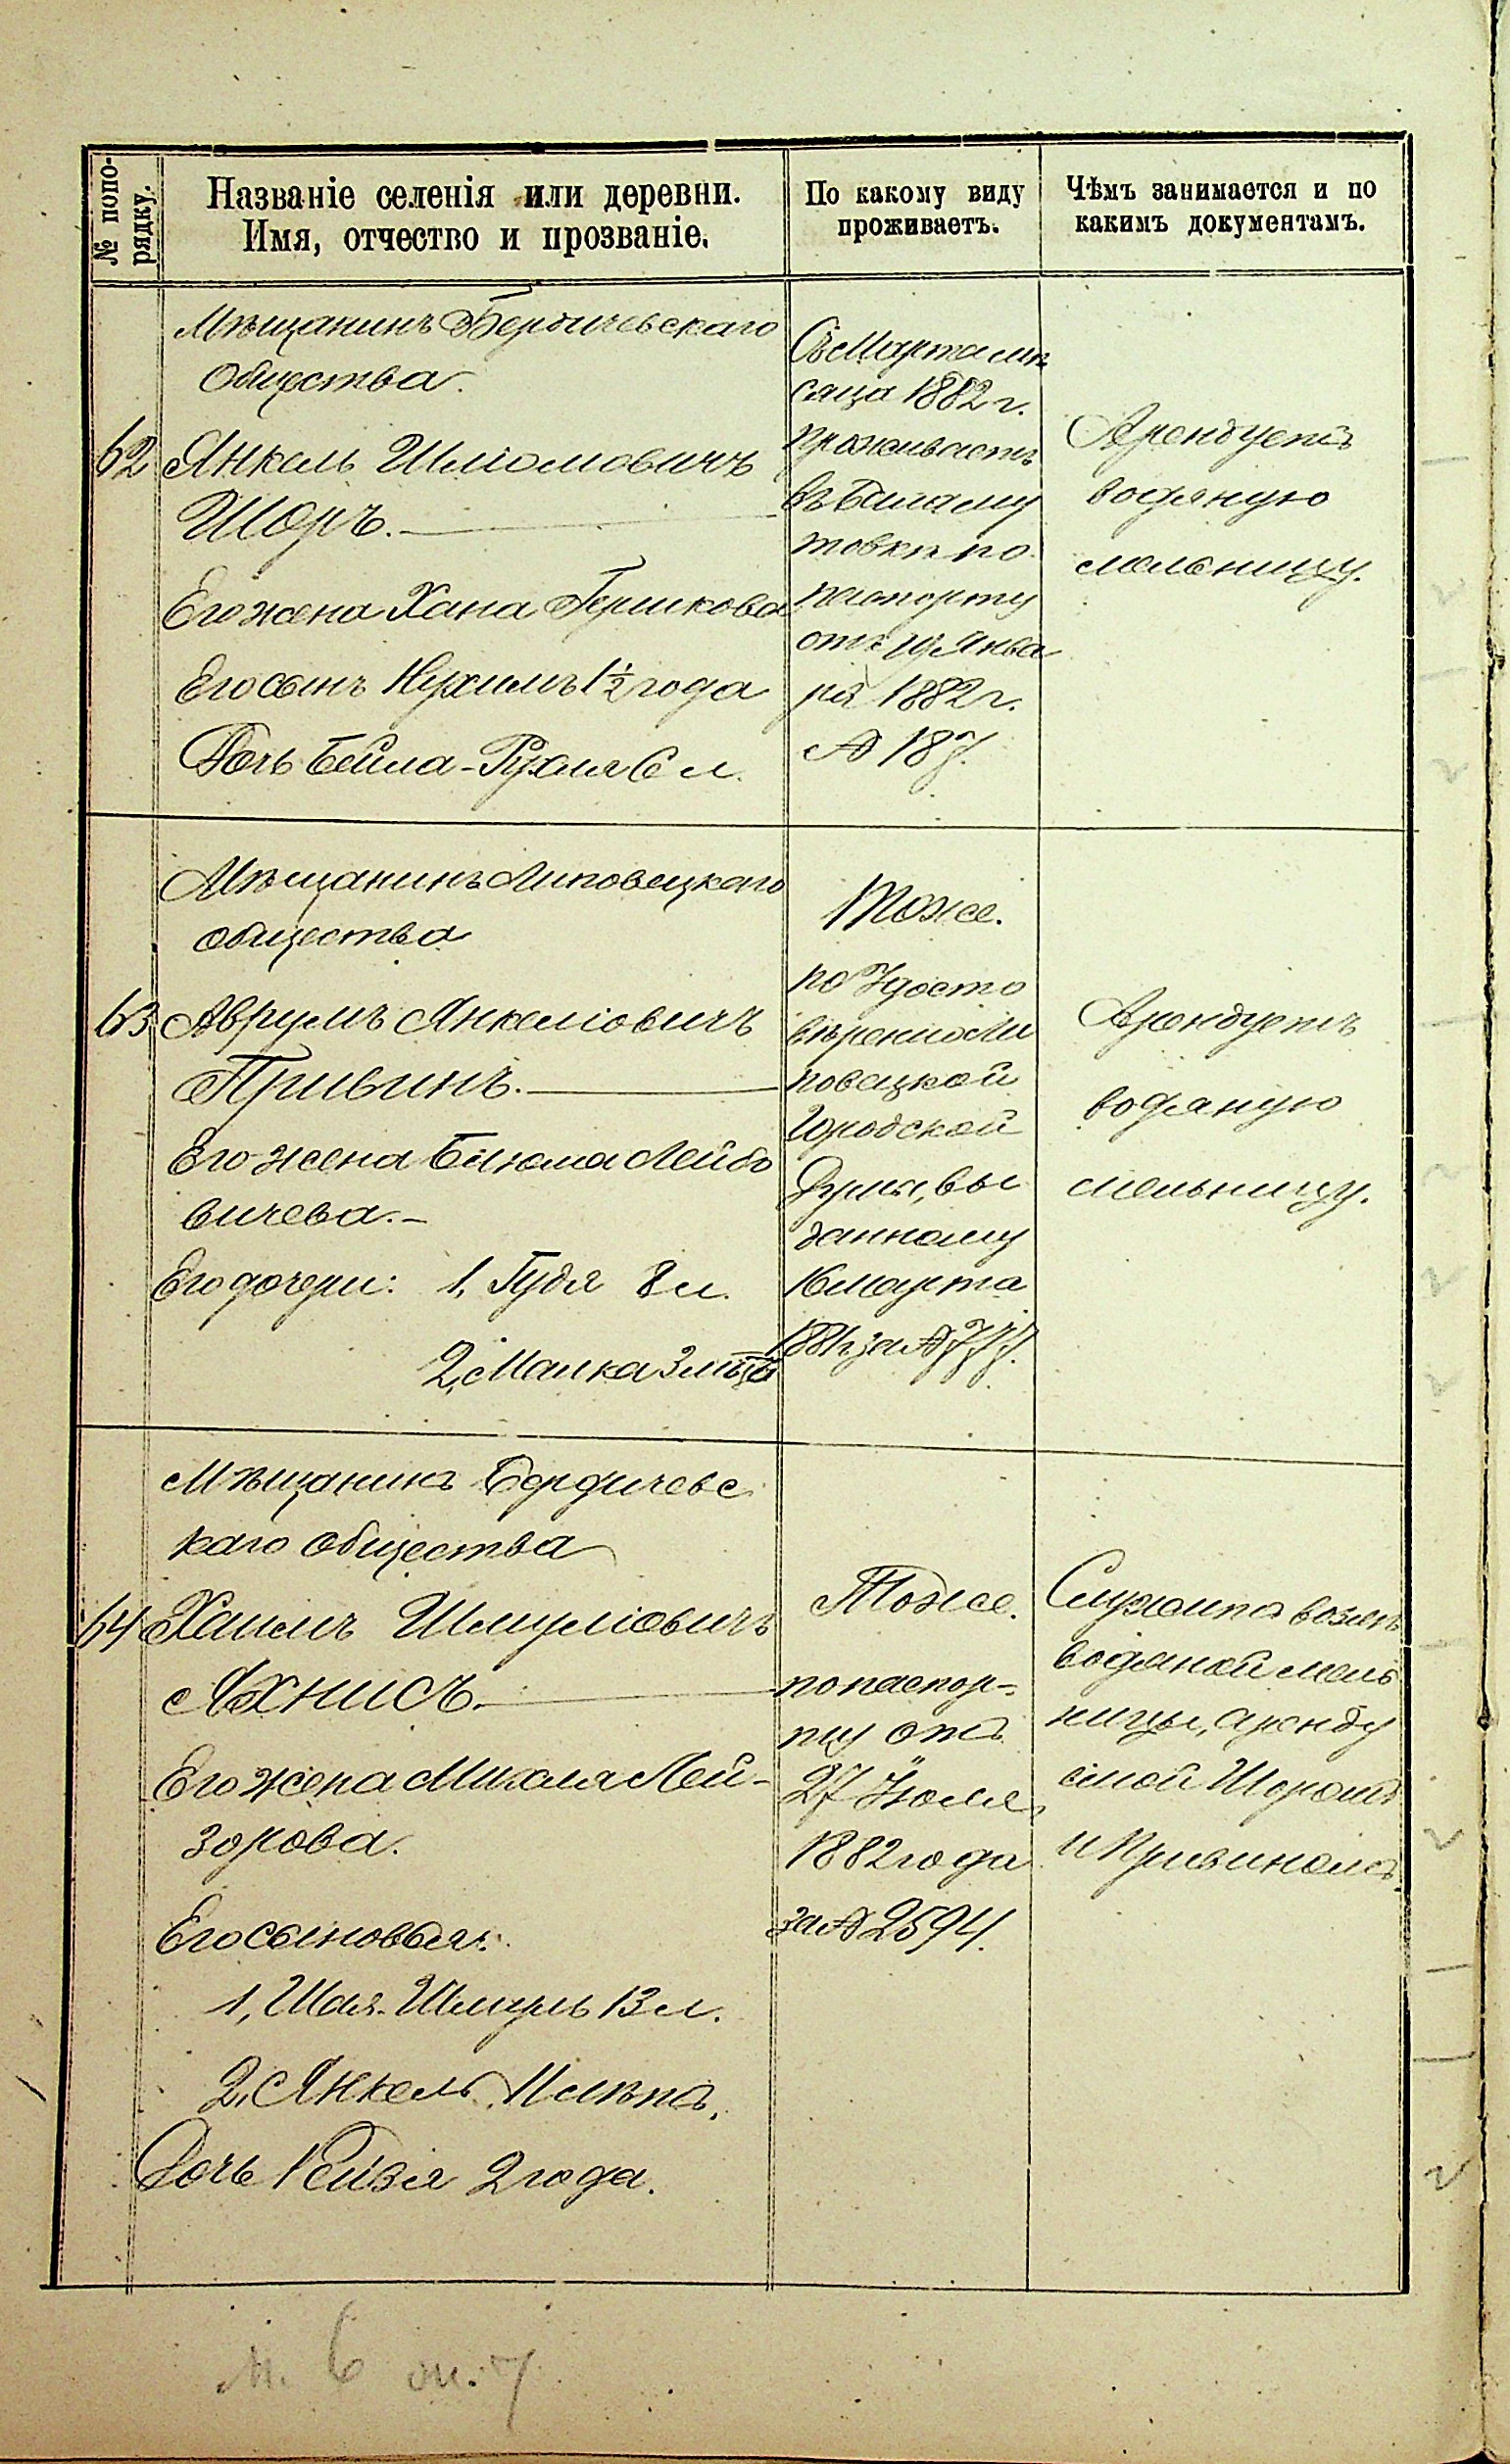 № попо-
рядку.
Названіе селенія или деревни.
Имя, отчество и прозваніе.
По какому виду
проживаетъ.
Чѣмъ занимается и по
какимъ документамъ.
Мѣщанинъ Бердичевскаго
Общества.
62 Янкель Шліомовичъ
Шоръ.
Его жена Хана Гершкова
Его сынъ Нухимъ 1½ года
Дочь Бейла-Рухля 6 л.
Съ Марта мѣ
сяца 1882 г.
проживаетъ
въ
товкѣ по
паспорту
отъ Янва
ря 1882 г.
№ 187.
Арендуетъ
водяную
мельницу.
Мѣщанинъ Липовецкаго
общества
63 Аврумъ Янкеліовичъ
Привинъ.
Его жена Блюма Лейбо
вичева.-
Его дочери: 1, Гудя 8 л.
2, Малка 3 лѣтъ
Тоже.
по Удосто
вѣренію Ли
повецкой
Городской
Думы, вы
данному
16 марта
1881 за № 777.
Арендуетъ
водяную
мельницу.
Мѣщанинъ Бердичевс
каго общества
64 Хаимъ Шмуліовичъ
Яхнисъ.
Его жена Михля Лей-
зорова.
Его сыновья:
1, Шая-Шмуль 13 л.
2, Янкель 11 лѣтъ.
Дочь Рейзя 2 года.
Тоже.
по паспор-
ту отъ
27 Іюля
1882 года
за № 2594.
Служитъ возлѣ
водяной мель
ницы, аренду
емой Шоромъ
и Привиномъ.
м. 6 ж. 7